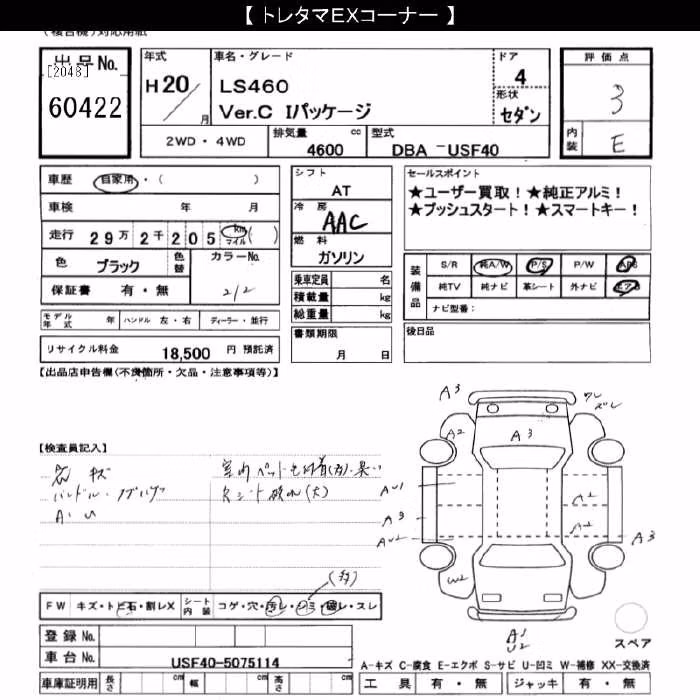 【 トレタマEXコーナー 】
(複合機)対応用紙
出品No. [2048] 60422
年式 H20/ 月
車名・グレード LS460 Ver.C Iパッケージ
ドア 4
形状 セダン
2WD・4WD
排気量 cc 4600
型式 DBA −USF40
評価点 3
内装 E
車歴 自家用・( )
車検 年 月
走行 29万 2千 205 km マイル ( )
色 ブラック 色替 カラーNo. 212
保証書 有・無
シフト AT
冷房 AAC
燃料 ガソリン
乗車定員 名
積載量 kg
総重量 kg
セールスポイント
★ユーザー買取!★純正アルミ!
★プッシュスタート!★スマートキー!
装備品 S/R 純A/W P/S P/W ABS
純TV 純ナビ 革シート 外ナビ エアB
ナビ型番:
モデル年式 年 ハンドル 左・右 ディーラー・並行
書類期限 月 日
後日品
リサイクル料金 18,500 円 預託済
【出品店申告欄(不具箇所・欠品・注意事項等)】
【検査員記入】
A3
A2
A3
AU1
A3
AU2
A2
A2
A3
W2
A1
U2
スペア
FW キズ・トビ石・割レX シート内装 コゲ・穴・汚レ・シミ・破レ・スレ
登録No.
車台No. USF40-5075114
A−キズ C−腐食 E−エクボ S−サビ U−凹ミ W−補修 XX−交換済
車庫証明用 長さ cm 幅 cm 高さ cm
工具 有・無 ジャッキ 有・無